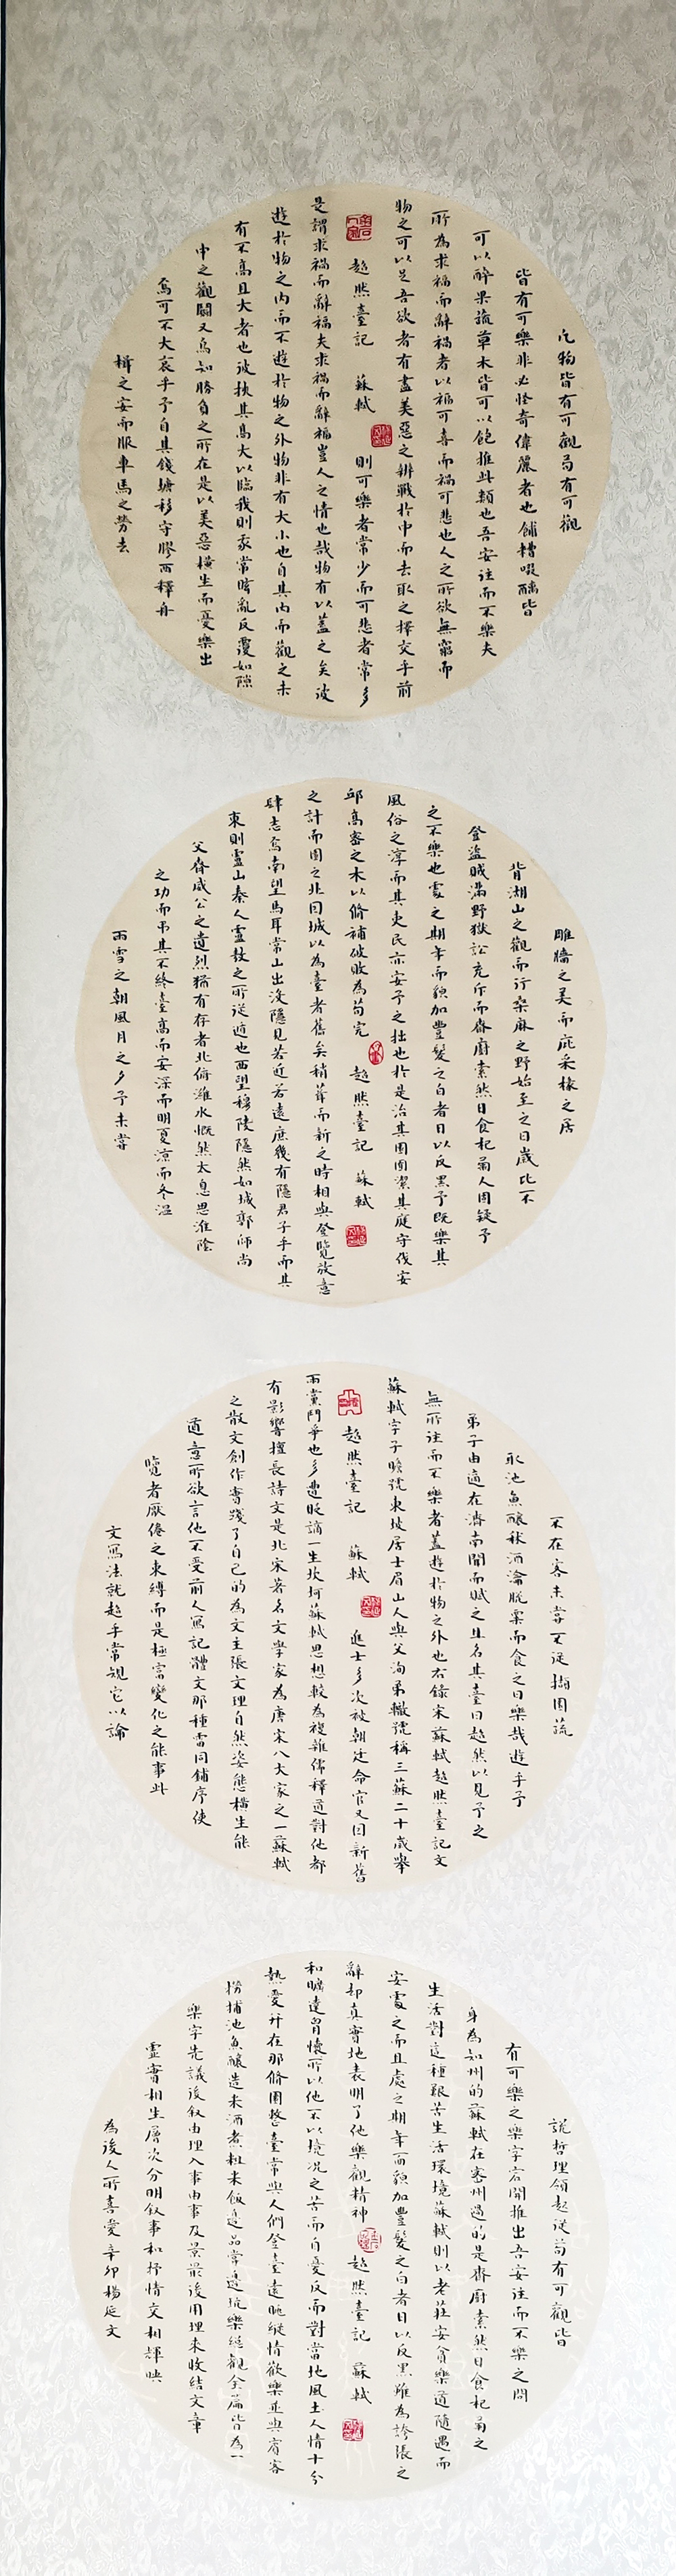 凡物皆有可觀苟有可觀
皆有可樂非必怪奇偉麗者也餔糟啜醨皆
可以醉果蔬草木皆可以飽推此類也吾安往而不樂夫
所為求福而辭禍者以福可喜而禍可悲也人之所欲無窮而
物之可以足吾欲者有盡美惡之辨戰於中而去取之擇交乎前
超然臺記 蘇軾 則可樂者常少而可悲者常多
是謂求禍而辭福夫求禍而辭福豈人之情也哉物有以蓋之矣彼
遊於物之內而不遊於物之外物非有大小也自其內而觀之未
有不高且大者也彼挾其高大以臨我則我常眩亂反覆如隙
中之觀鬪又烏知勝負之所在是以美惡橫生而憂樂出
焉可不大哀乎予自其錢塘移守膠西釋舟
楫之安而服車馬之勞去
雕牆之美而庇采椽之居
背湖山之觀而行桑麻之野始至之日歲比不
登盜賊滿野獄訟充斥而齋廚索然日食杞菊人固疑予
之不樂也處之期年而貌加豐髮之白者日以反黑予既樂其
風俗之淳而其吏民亦安予之拙也於是治其園囿潔其庭宇伐安
邱高密之木以修補破敗為苟完 超然臺記 蘇軾
之計而園之北因城以為臺者舊矣稍葺而新之時相與登覽放意
肆志焉南望馬耳常山出沒隱見若近若遠庶幾有隱君子乎而其
東則盧山秦人盧敖之所從遁也西望穆陵隱然如城郭師尚
父齊威公之遺烈猶有存者北俯濰水慨然太息思淮陰
之功而弔其不終臺高而安深而明夏涼而冬溫
雨雪之朝風月之夕予未嘗
不在客未嘗不從擷園蔬
取池魚釀秫酒瀹脫粟而食之曰樂哉遊乎予
弟子由適在濟南聞而賦之且名其臺曰超然以見予之
無所往而不樂者蓋遊於物之外也右錄宋蘇軾超然臺記文
蘇軾字子瞻號東坡居士眉山人與父洵弟轍號稱三蘇二十歲舉
超然臺記 蘇軾 進士多次被朝廷命官又因新舊
兩黨鬥爭也多遭貶謫一生坎坷蘇軾思想較為複雜儒釋道對他都
有影響擅長詩文是北宋著名文學家為唐宋八大家之一蘇軾
之散文創作實踐了自己的為文主張文理自然姿態橫生能
道意所欲言他不受前人寫記體文那種雷同鋪序使
覽者厭倦之束縛而是極富變化之能事此
文寫法就超乎常規它以論
說哲理領起從苟有可觀皆
有可樂之樂字宕開推出吾安往而不樂之問
身為知州的蘇軾在密州過的是齋廚索然日食杞菊之
生活對這種艱苦生活環境蘇軾則以老莊安貧樂道隨遇而
安處之而且處之期年而貌加豐髮之白者日以反黑雖為誇張之
辭却真實地表明了他樂觀精神 超然臺記 蘇軾
和曠達胸懷所以他不以境況之苦而自憂反而對當地風土人情十分
熱愛并在那修園整臺常與人們登臺遠眺縱情歡樂並與賓客
撈捕池魚釀造米酒煮粗米飯邊品嘗邊玩樂縱觀全篇皆為一
樂字先議後叙由理入事由事及景最後用理來收結文章
虛實相生層次分明叙事和抒情交相輝映
為後人所喜愛辛卯楊延文